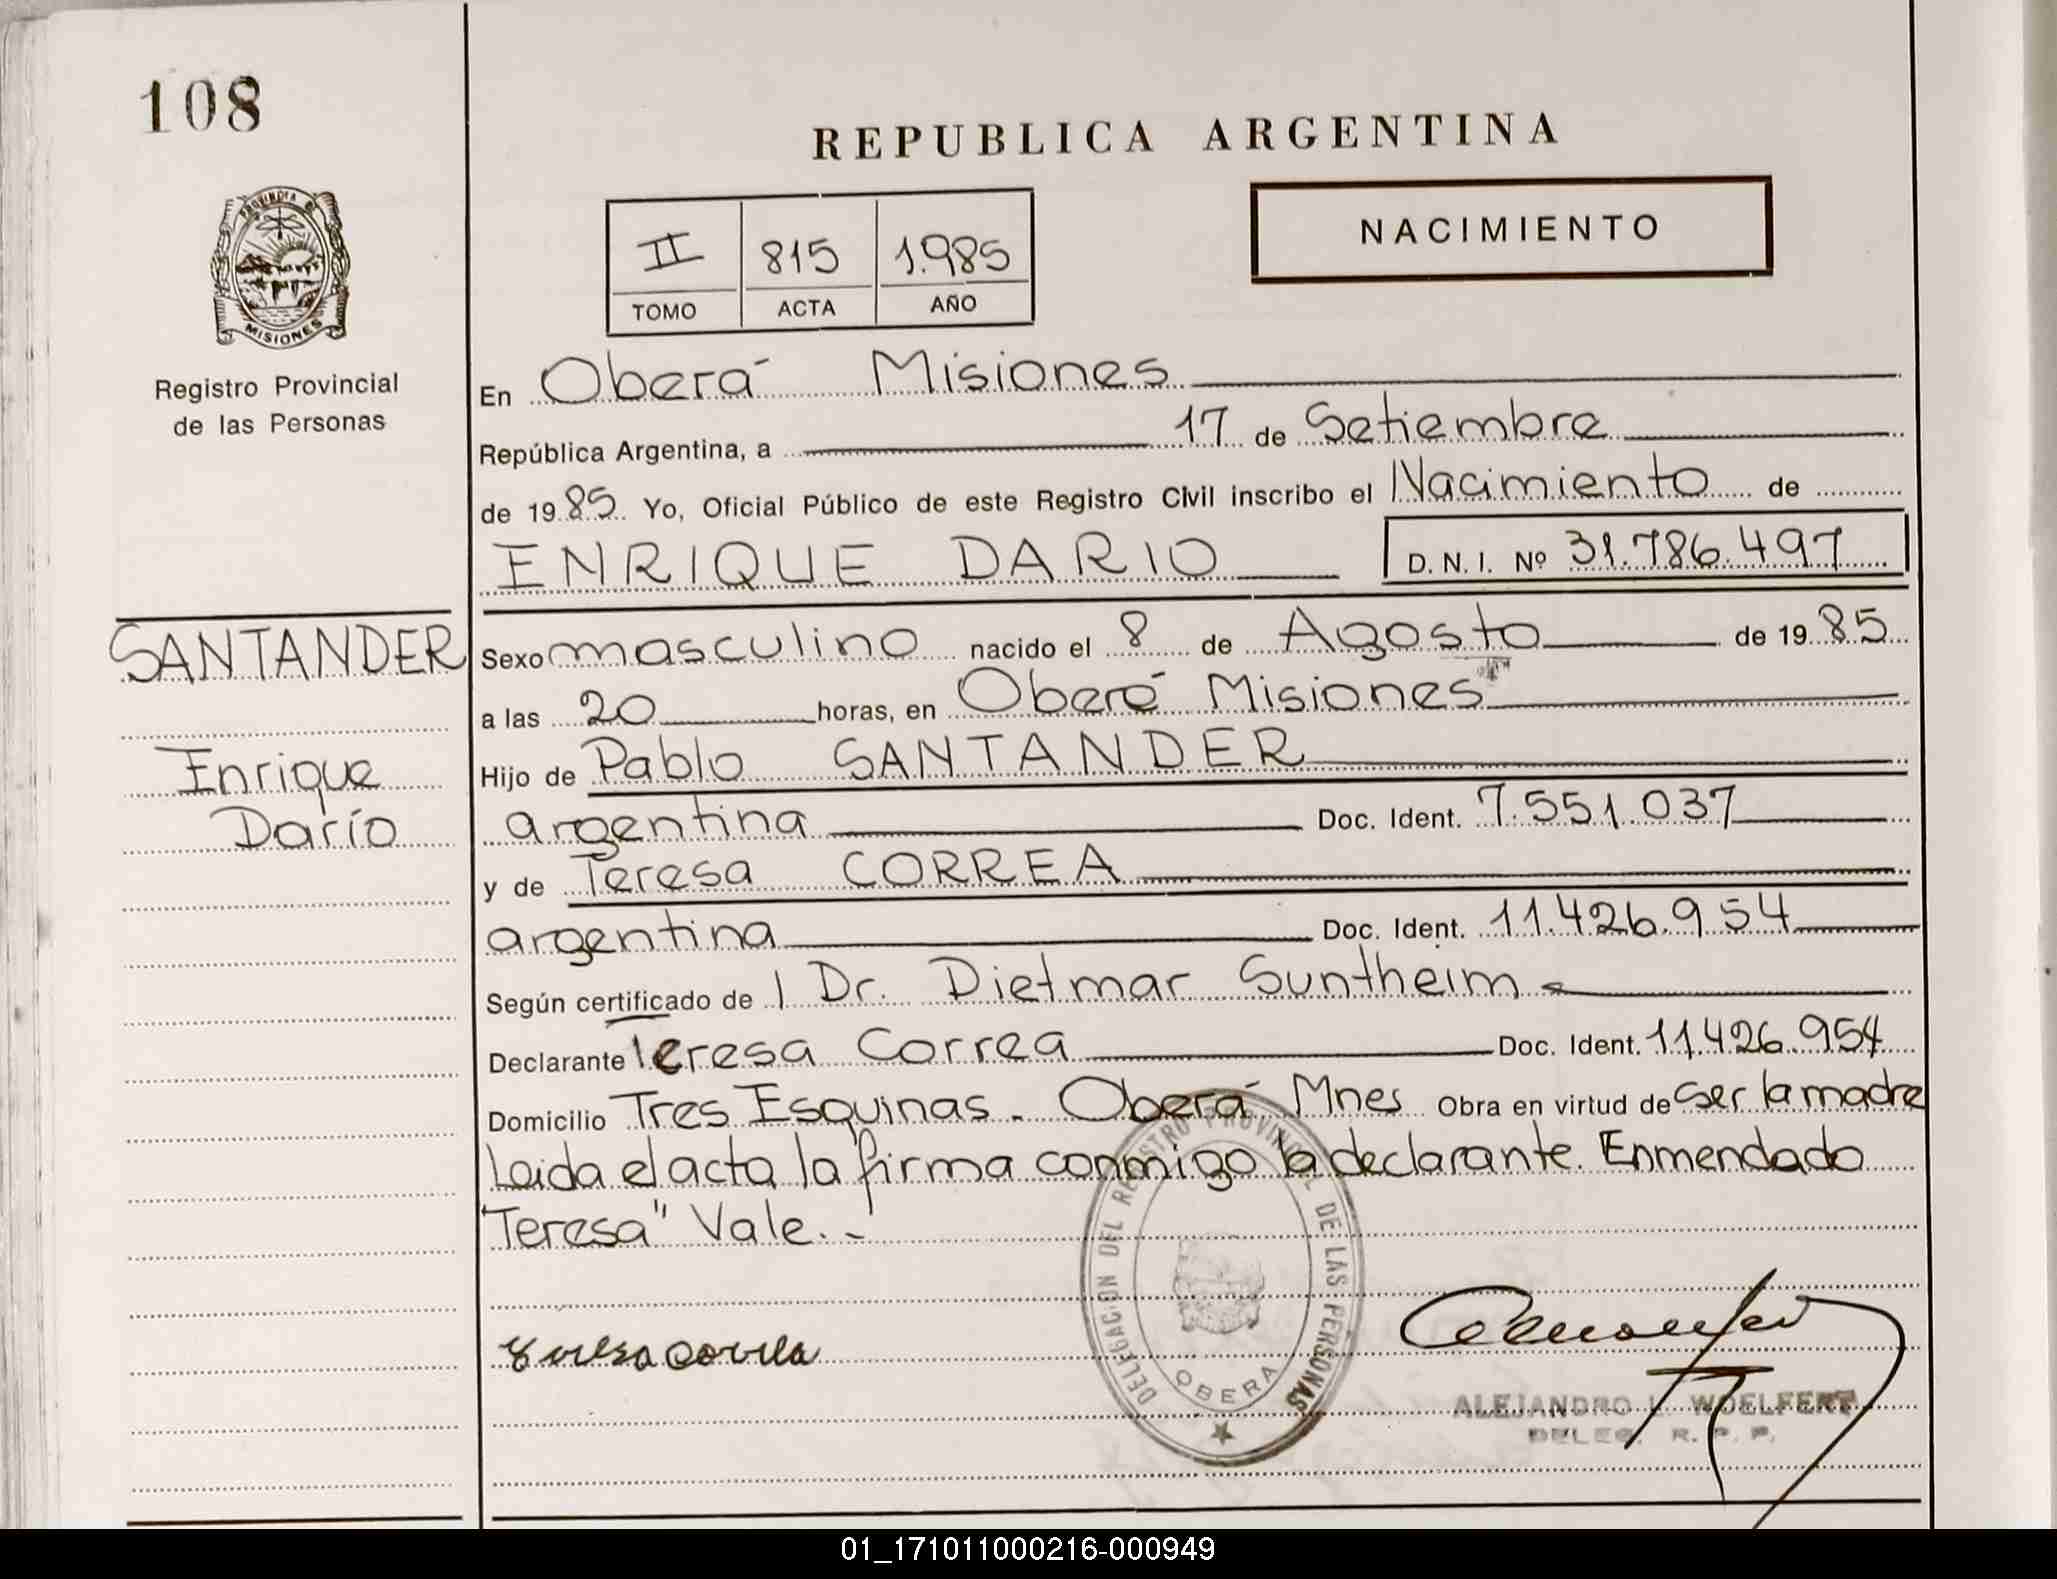 108
REPUBLICA ARGENTINA
PROVINCIA DE
MISIONES
Registro Provincial
de las Personas
II 815 1.985
TOMO ACTA AÑO
NACIMIENTO
En Oberá Misiones
República Argentina, a 17 de Setiembre
de 19 85 Yo, Oficial Público de este Registro Civil inscribo el Nacimiento de
ENRIQUE DARIO D.N.I. Nº 31.786.497
SANTANDER
Enrique
Darío
Sexo masculino nacido el 8 de Agosto de 19 85
a las 20 horas, en Oberá Misiones
Hijo de Pablo SANTANDER
argentina Doc. Ident. 7.551.037
y de Teresa CORREA
argentina Doc. Ident. 11.426.954
Según certificado de Dr. Dietmar Suntheim
Declarante Teresa Correa Doc. Ident. 11.426.954
Domicilio Tres Esquinas - Oberá Mnes Obra en virtud de ser la madre
Leida el acta la firma conmigo la declarante. Enmendado
"Teresa" Vale.-
DELEGACION DEL REGISTRO PROVINCIAL DE LAS PERSONAS
OBERA
Teresa correa
ALEJANDRO L. WOELFERT
DELEG. R. P. P.
01_171011000216-000949